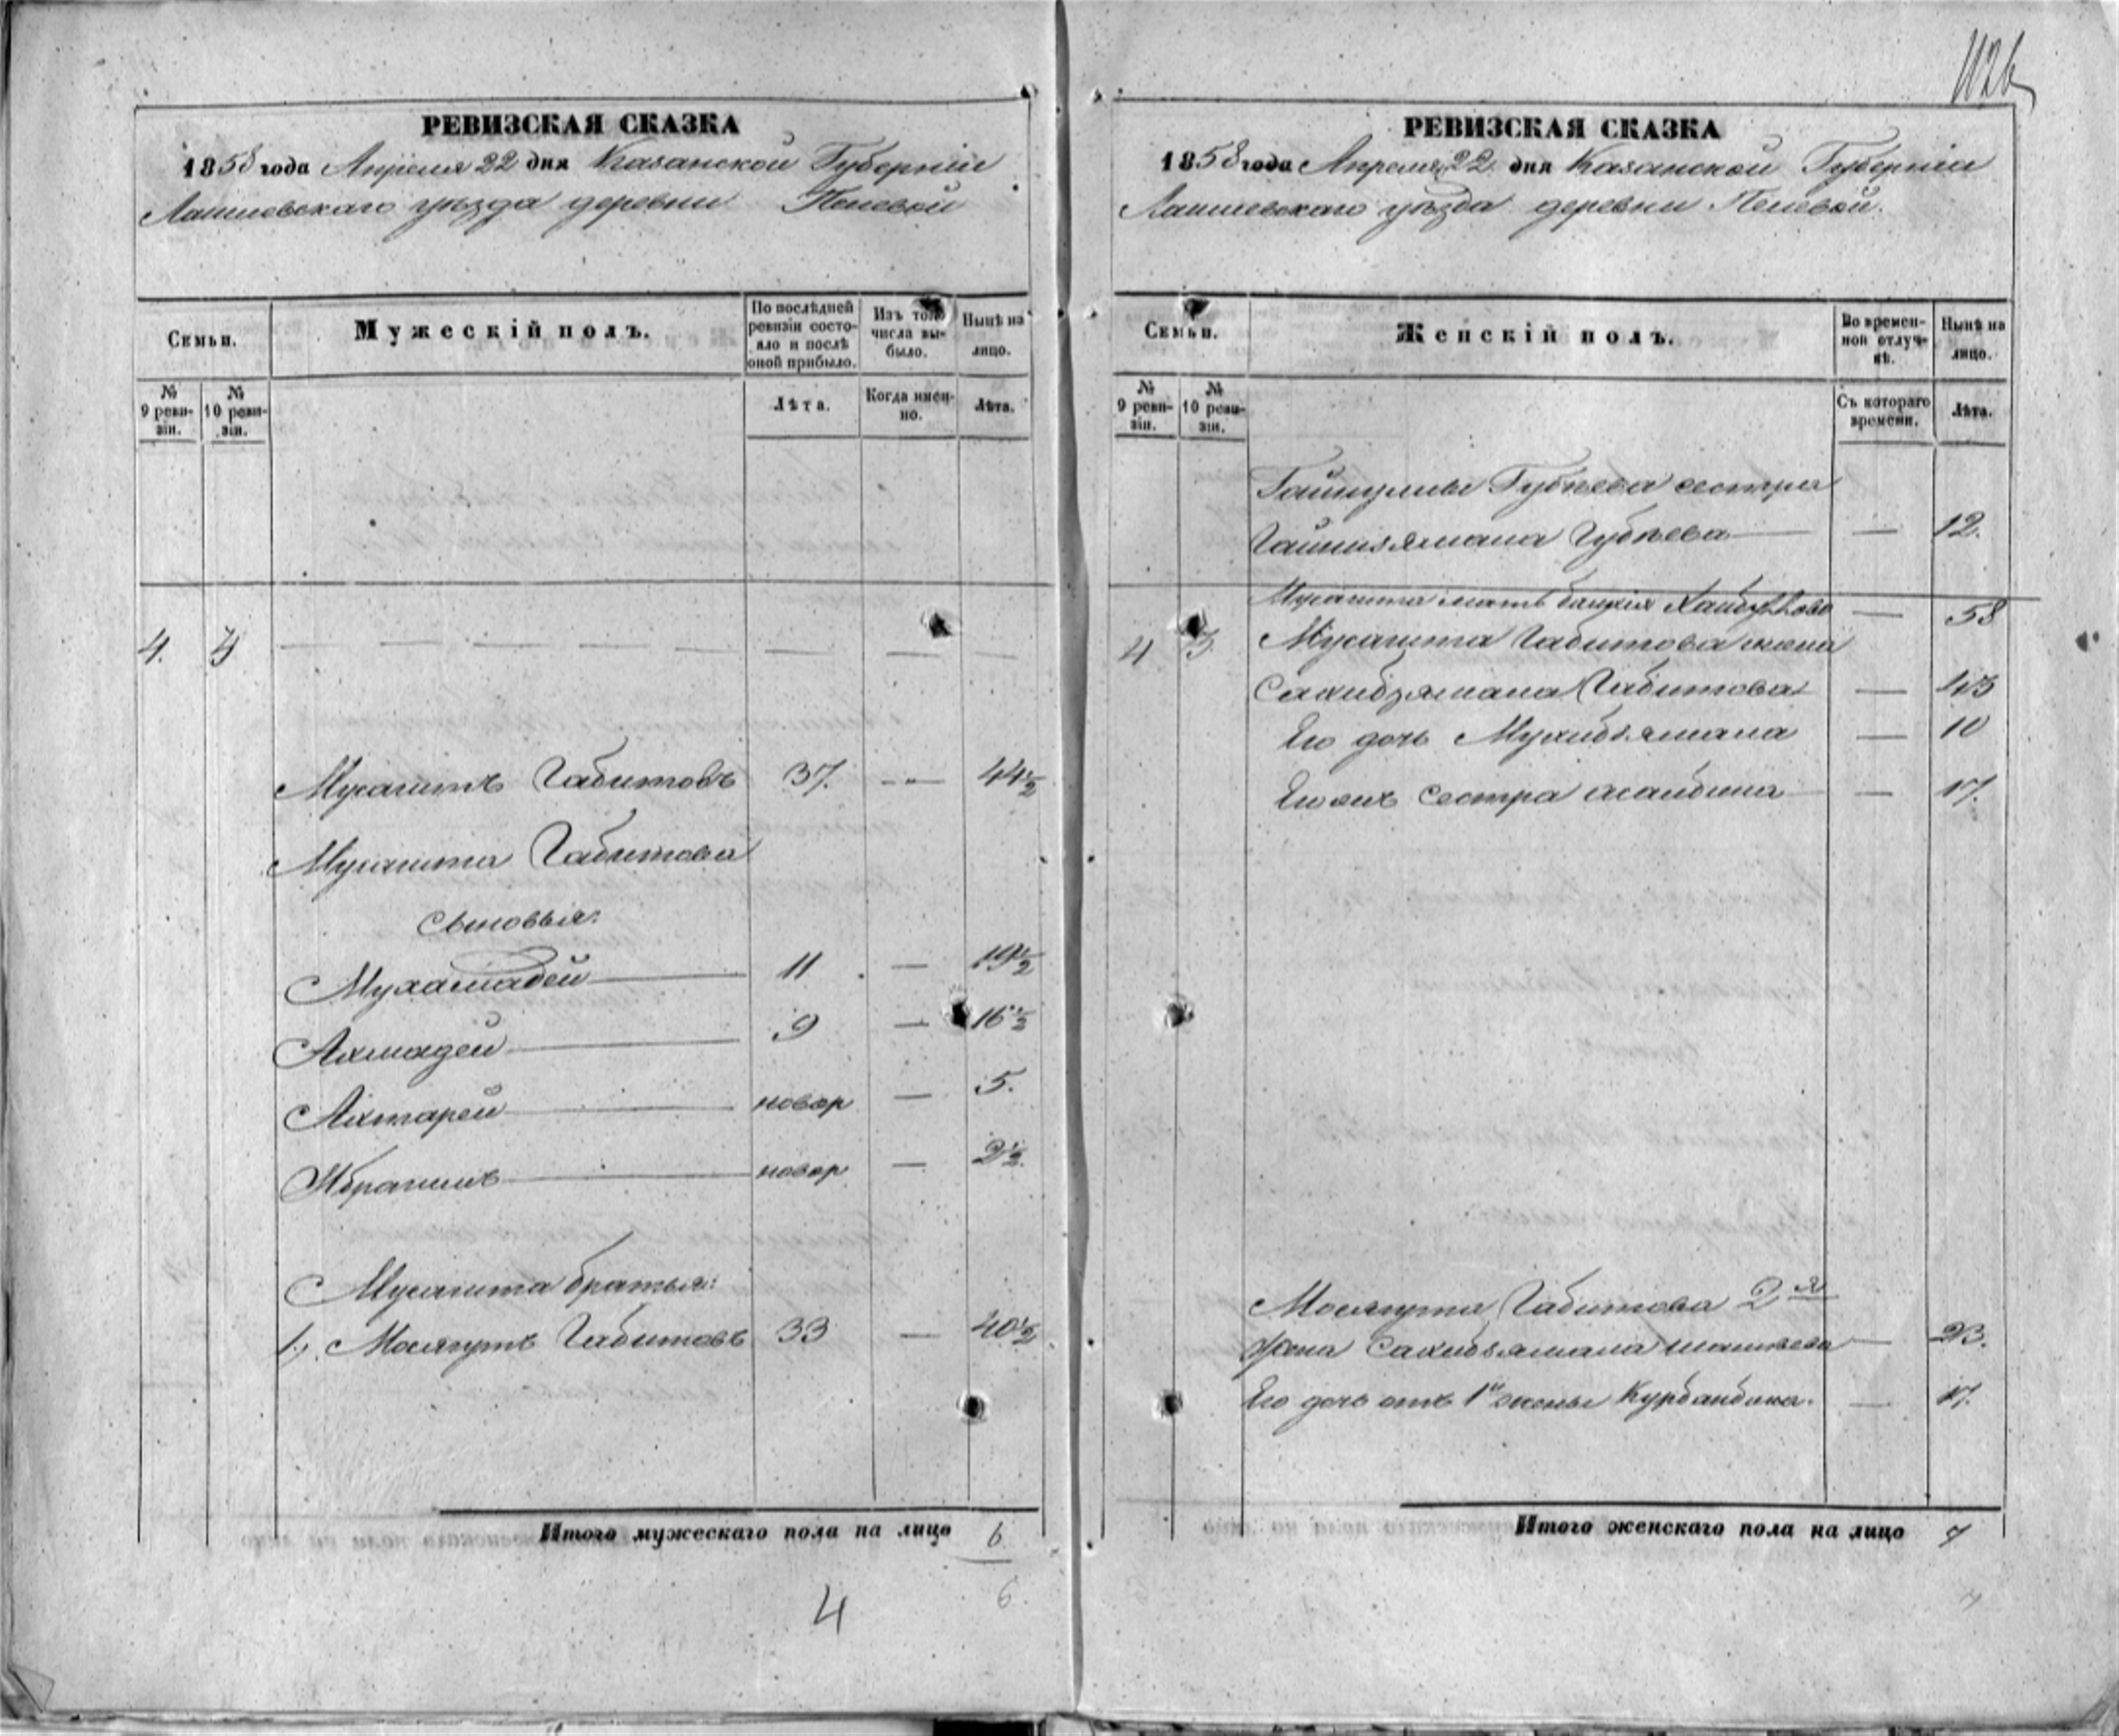 РЕВИЗСКАЯ СКАЗКА
1858 года Апреля 22 дня Казанской Губерніи
Лаишевскаго уѣзда деревни
Семьи.
Мужескій полъ.
По послѣдней ревизіи состояло и послѣ оной прибыло.
Изъ того числа выбыло.
Нынѣ на лицо.
№ 9 ревизіи.
№ 10 ревизіи.
Лѣта.
Когда имен-
но.
Лѣта.
4. 3
Мусагитъ Габитовъ 37. 44½
Мусагита Габитова
сыновья:
Мухамадей 11 19½
Ахмадей 9 16½
Ахтарей новор 5.
Ибрагимъ новор 2½.
Мусагита братья:
1., Мосягутъ Габитовъ 33 40½
Итого мужескаго пола на лицо 6
6
4
1126
РЕВИЗСКАЯ СКАЗКА
1858 года Апреля 22 дня Казанской Губерніи
Лаишевскаго уѣзда деревни
Семьи.
Женскій полъ.
Во временной отлучкѣ.
Нынѣ на лицо.
№ 9 ревизіи.
№ 10 ревизіи.
Съ котораго
времени.
Лѣта.
Губѣева сестра
Губѣева 12.
Мусагита мать 58
4 3 Мусагита Габитова жена
Сахибзямала Габитова 43
Его дочь Мухибзямала 10
Его же сестра 17.
Мосягута Габитова 2я
жена Сахибзямала 23.
Его дочь отъ 1й жены Курбанбика. 17.
Итого женскаго пола на лицо 7
7